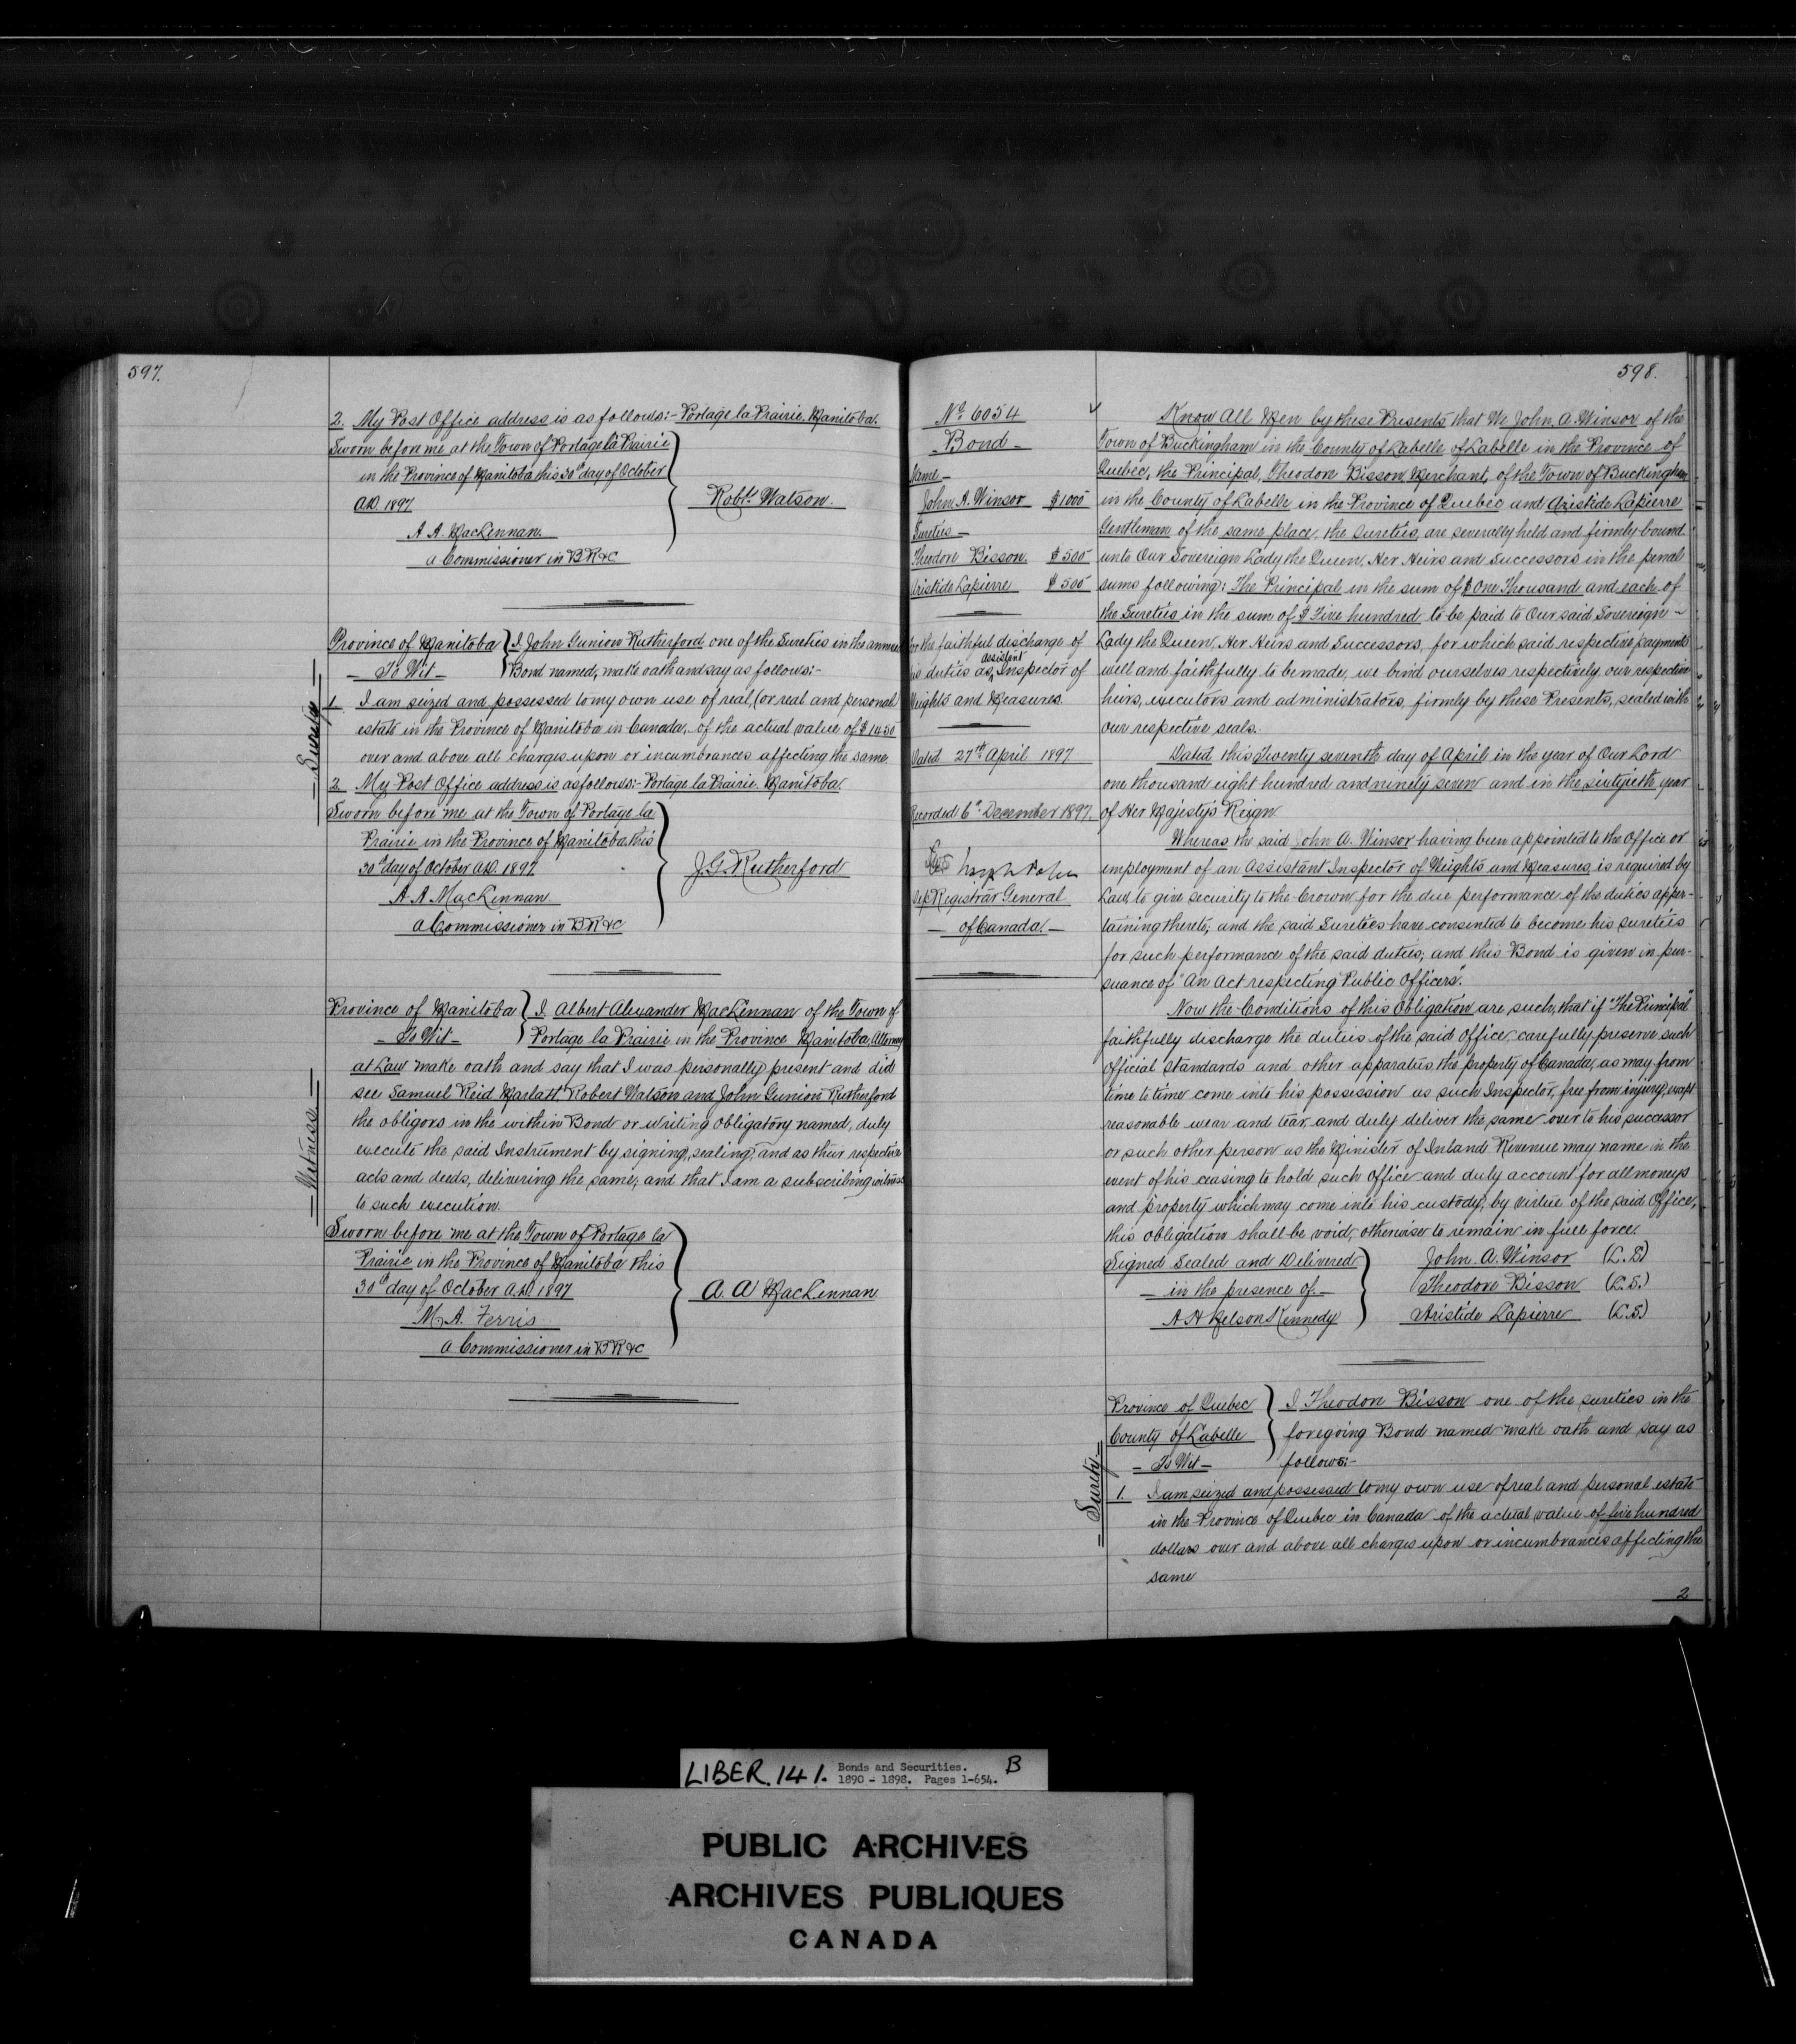 597.
2. My Post Office address is as follows:- Portage la Prairie. Manitoba.
Sworn before me at the Town of Portage la Prairie
in the Province of Manitoba this 30th day of October
A.D. 1897
Robt. Watson.
A A. MacLennan.
a Commissioner in B.R &c
Surety
Province of Manitoba
- To Wit -
I, John Gunion Rutherford one of the Sureties in the annexed
Bond named, make oath and say as follows:-
1. I am seized and possessed to my own use of real, (or real and personal
estate in the Province of Manitoba in Canada, of the actual value of $1450
over and above all charges upon or incumbrances affecting the same.
2. My Post Office address is as follows:- Portage la Prairie. Manitoba.
Sworn before me at the Town of Portage la
Prairie in the Province of Manitoba this
30th day of October A.D. 1897.
J. G. Rutherford
A. A MacLennan
a Commissioner in B R &c
Witness
Province of Manitoba
- To Wit -
I, Albert Alexander MacLennan of the Town of
Portage la Prairie in the Province Manitoba, Attorney
at Law make oath and say that I was personally present and did
see Samuel Reid Marlatt Robert Watson and John Gunion Rutherford
the obligors in the within Bond or writing obligatory named, duly
execute the said Instrument by signing, sealing, and as their respective
acts and deeds, delivering the same; and that I am a subscribing witness
to such execution.
Sworn before me at the Town of Portage la
Prairie in the Province of Manitoba this
30th day of October A.D. 1897
A. A MacLennan
M. A. Ferris
a Commissioner in B R &c
598.
No. 6054
- Bond -
Name -
John A. Winsor $1000
Sureties -
Theodon Bisson. $500
Aristide Lapierre $500
for the faithful discharge of
his duties as assistant Inspector of
Weights and Measures.
Dated 27th April 1897
Recorded 6th December 1897.
Dep Registrar General
- of Canada. -
Know All Men by these Presents that We John A. Winsor of the
Town of Buckingham in the County of Labelle of Labelle in the Province of
Quebec, the Principal, Theodon Bisson Merchant, of the Town of Buckingham
in the County of Labelle in the Province of Quebec and Aristide Lapierre
Gentleman of the same place, the sureties, are severally held and firmly bound
unto Our Sovereign Lady the Queen, Her Heirs and Successors in the penal
sums following: The Principal in the sum of $ One Thousand and each of
the Sureties in the sum of $ Five hundred to be paid to Our said Sovereign -
Lady the Queen, Her Heirs and Successors, for which said respective payments
well and faithfully to be made, we bind ourselves respectively our respective
heirs, executors and administrators firmly by these Presents, sealed with
our respective seals.
Dated this Twenty seventh day of April in the year of Our Lord
one thousand eight hundred and ninety seven and in the sixtyeth year
of Her Majesty's Reign.
Whereas the said John A. Winsor having been appointed to the Office or
employment of an Assistant Inspector of Weights and Measures, is required by
Law, to give security to the Crown for the due performance of the duties apper-
taining thereto; and the said Sureties have consented to become his sureties
for such performance of the said duties; and this Bond is given in pur-
suance of "An Act respecting Public Officers".
Now the Conditions of this Obligation are such, that if "The Principal"
faithfully discharge the duties of the said Office, carefully preserve such
official standards and other apparatus, the property of Canada, as may from
time to time come into his possession as such Inspector, free from injury, except
reasonable wear and tear, and duly deliver the same over to his successor
or such other person as the Minister of Inland Revenue may name in the
event of his ceasing to hold such Office and duly account for all moneys
and property which may come into his custody, by virtue of the said Office,
this obligation shall be void, otherwise to remain in full force.
Signed Sealed and Delivered
- in the presence of. -
A H Nelson Kennedy
John. A. Winsor (L.S)
Theodore Bisson (L.S.)
Aristide Lapierre (L.S)
Surety
Province of Quebec
County of Labelle
- To Wit -
I, Theodon Bisson one of the sureties in the
foregoing Bond named make oath and say as
follows:-
1. I am seized and possessed to my own use of real and personal estate
in the Province of Quebec in Canada of the actual value of five hundred
dollars over and above all charges upon or incumbrances affecting the
same
2
LIBER. 141. Bonds and Securities. B
1890 - 1898. Pages 1-654.
PUBLIC ARCHIVES
ARCHIVES PUBLIQUES
CANADA